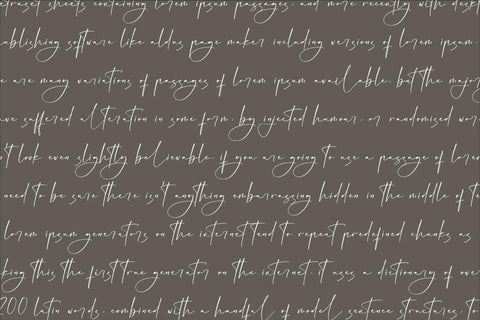 etraset sheets containing lorem ipsum passages, and more recently with deskt
ublishing software like aldus page maker including versions of lorem ipsum.
e are many variations of passages of lorem ipsum available, but the major
ve suffered alteration in some form, by injected humour, or randomised wor
n't look even slightly believable. if you are going to use a passage of lorem
need to be sure there isn't anything embarrassing hidden in the middle of te
lorem ipsum generators on the internet tend to repeat predefined chunks as
king this the first true generator on the internet. it uses a dictionary of over
200 latin words, combined with a handful of model sentence structures, to